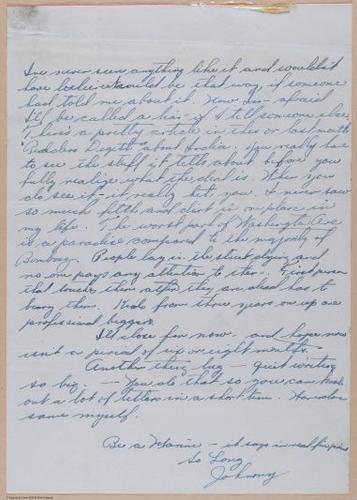 I've never seen anything like it and wouldn't
have believed would be that way, if someone
had told me about it. Now I'm afraid
I'll be called a liar if I tell someone else.
There's a pretty article in this or last month
Readers Digest about India. You really have
to see the stuff it tells about before you
fully realize what the deal is. When you
do see it - it really hits you. I never saw
so much filth and dirt in one place in
my life. The worst part of Washington Ave
is a paradise compared to the majority of
Bombay. People lay in the street dying and
no one pays any attention to them. First person
that touches them after they are dead has to
bury them. Kids from three years on up are
professional beggars.
I'll close for now. and hope now
isn't a period of six or eight months.
Another thing - Quit writing
so big. -- You do that so you can
out a lot of letters in a short time.
same myself.
Be a Marine - it says in real fine print
So Long
Johnny